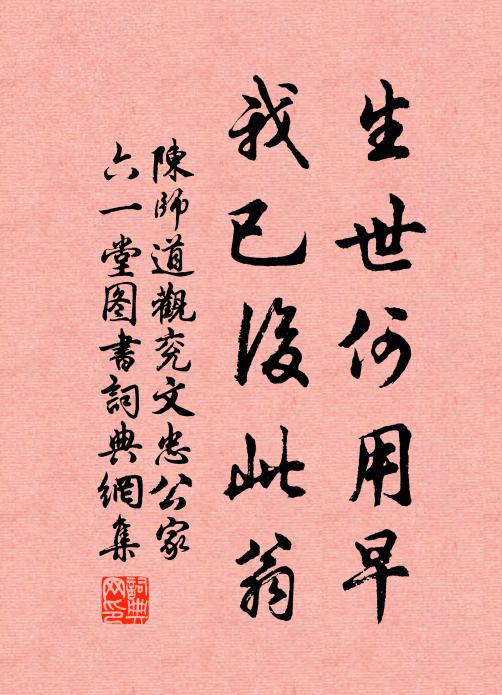 生世何用早
我已後此翁
陳師道觀兖文忠公家
六一堂图書詞典網集
詞典网印